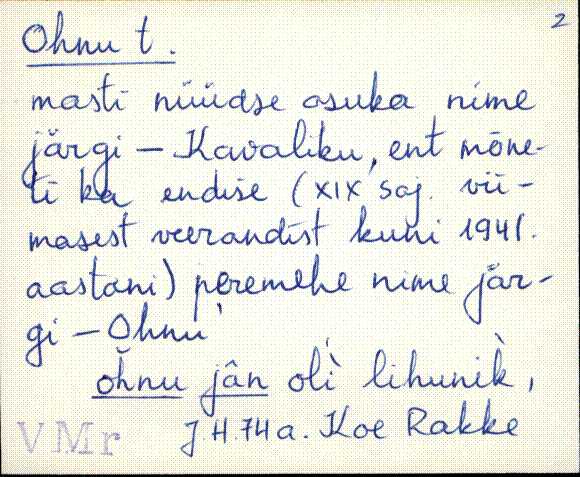 2
Ohnu t.
masti nüüdse asuka nime
järgi – Kavaliku, ent mõne-
ti ka endise (XIX saj. vii-
masest veerandist kuni 1941.
aastani) peremehe nime jär-
gi – Ohnu
ohnu jân olì̬ lihunik̀,
J.H. 74 a. Koe Rakke
VMr